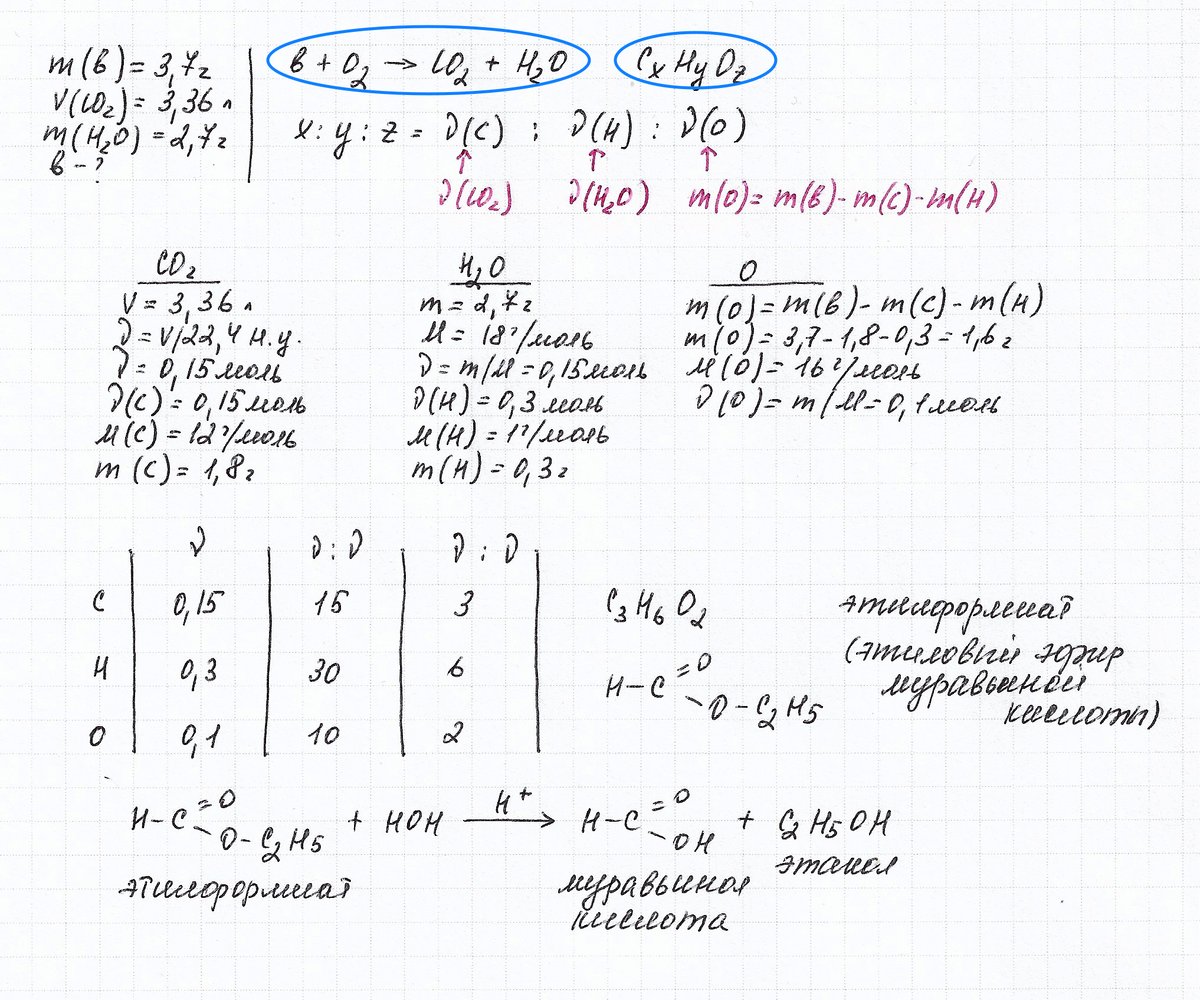 m(в) = 3,7г
V(CO₂) = 3,36 л
m(H₂O) = 2,7г
в - ?
в + O₂ → CO₂ + H₂O
CxHyOz
x : y : z = ν(C) : ν(H) : ν(O)
↑ ↑ ↑
ν(CO₂) ν(H₂O) m(O) = m(в) - m(C) - m(H)
CO₂
V = 3,36 л
ν = V/22,4 н.у.
ν = 0,15 моль
ν(C) = 0,15 моль
M(C) = 12 г/моль
m(C) = 1,8г
H₂O
m = 2,7г
M = 18 г/моль
ν = m/M = 0,15 моль
ν(H) = 0,3 моль
M(H) = 1 г/моль
m(H) = 0,3г
O
m(O) = m(в) - m(C) - m(H)
m(O) = 3,7 - 1,8 - 0,3 = 1,6 г
M(O) = 16 г/моль
ν(O) = m/M = 0,1 моль
ν ν : ν ν : ν
C 0,15 15 3
H 0,3 30 6
O 0,1 10 2
C₃H₆O₂
H-C
=O
O-C₂H₅
этилформиат
(этиловый эфир
муравьиной
кислоты)
H-C =O O-C₂H₅ + HOH H⁺ → H-C =O OH + C₂H₅OH
этилформиат
муравьиная
кислота
этанол